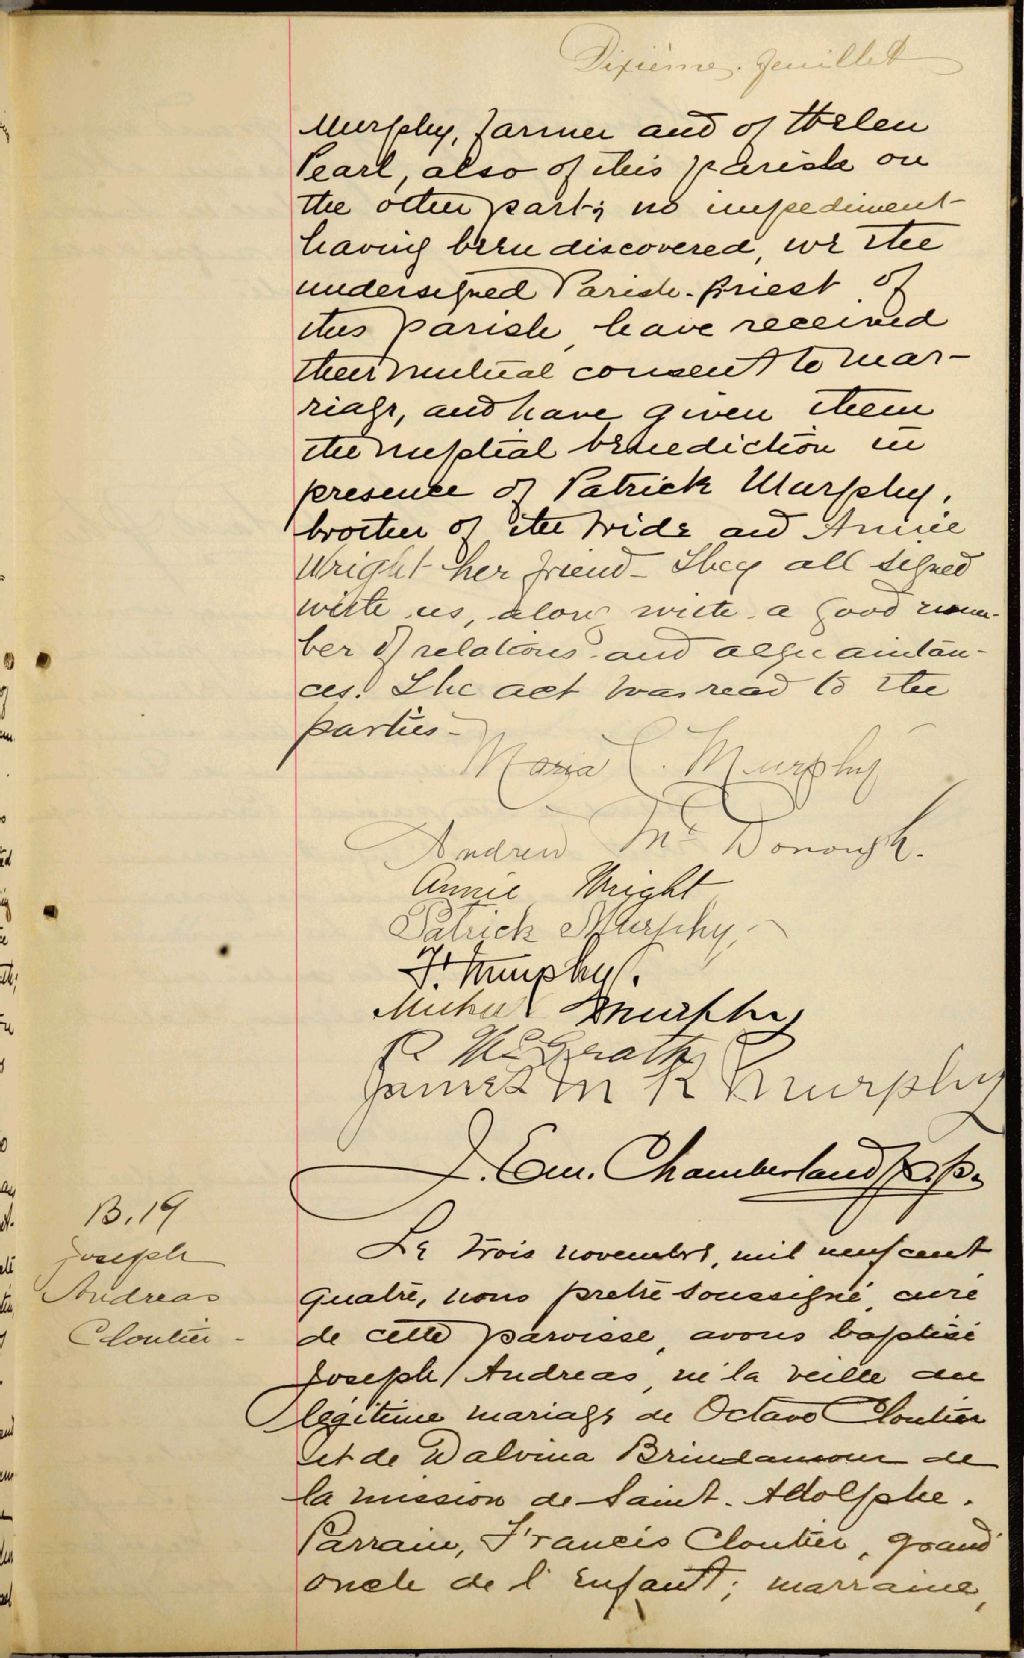 Dixième feuillet
Murphy, farmer and of Helen
Pearl, also of this parish on
the other part; no impediment
having been discovered, we the
undersigned Parish-Priest of
this parish, have received
their mutual consent to mar-
riage, and have given them
the nuptial benediction in
presence of Patrick Murphy,
brother of the bride and Annie
Wright her friend - They all signed
with us, along with a good num-
ber of relations and acquaintan-
ces. The act was read to the
parties -
Maria C. Murphy
Andrew Mc Donough.
Annie Wright
Patrick Murphy,
F. Murphy.
Michael Murphy
P. McGrath
James M K Murphy
J. Em. Chamberland p.p.
B. 19
Joseph
Andreas
Cloutier -
Le trois novembre, mil neuf cent
quatre, nous prêtre soussigné, curé
de cette paroisse, avons baptisé
Joseph Andreas, né la veille du
légitime mariage de Octave Cloutier
et de Dalvina Brindamour de
la mission de Saint-Adolphe.
Parrain, Francis Cloutier, grand
oncle de l'enfant; marraine,